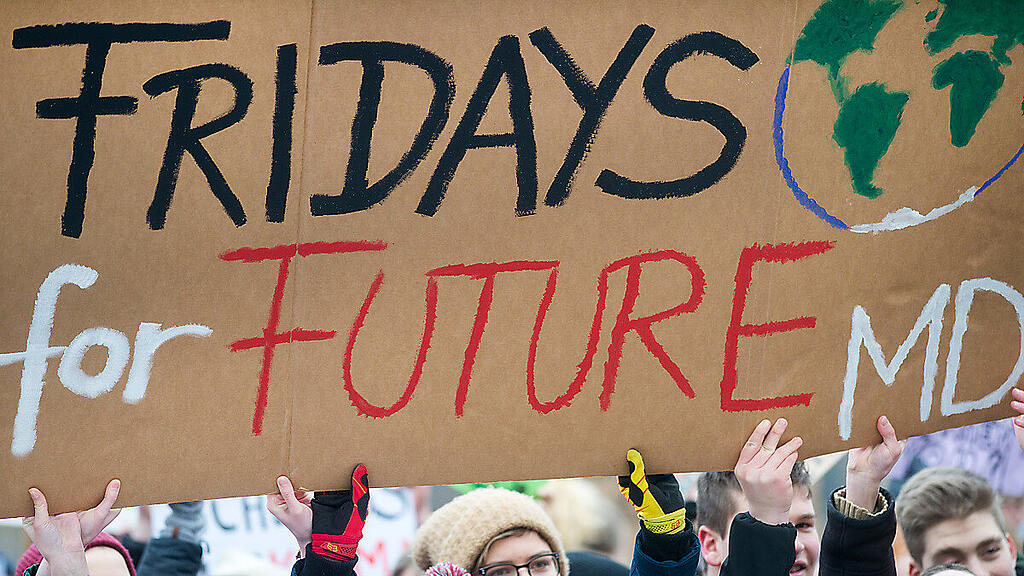 FRIDAYS
for FUTURE MD